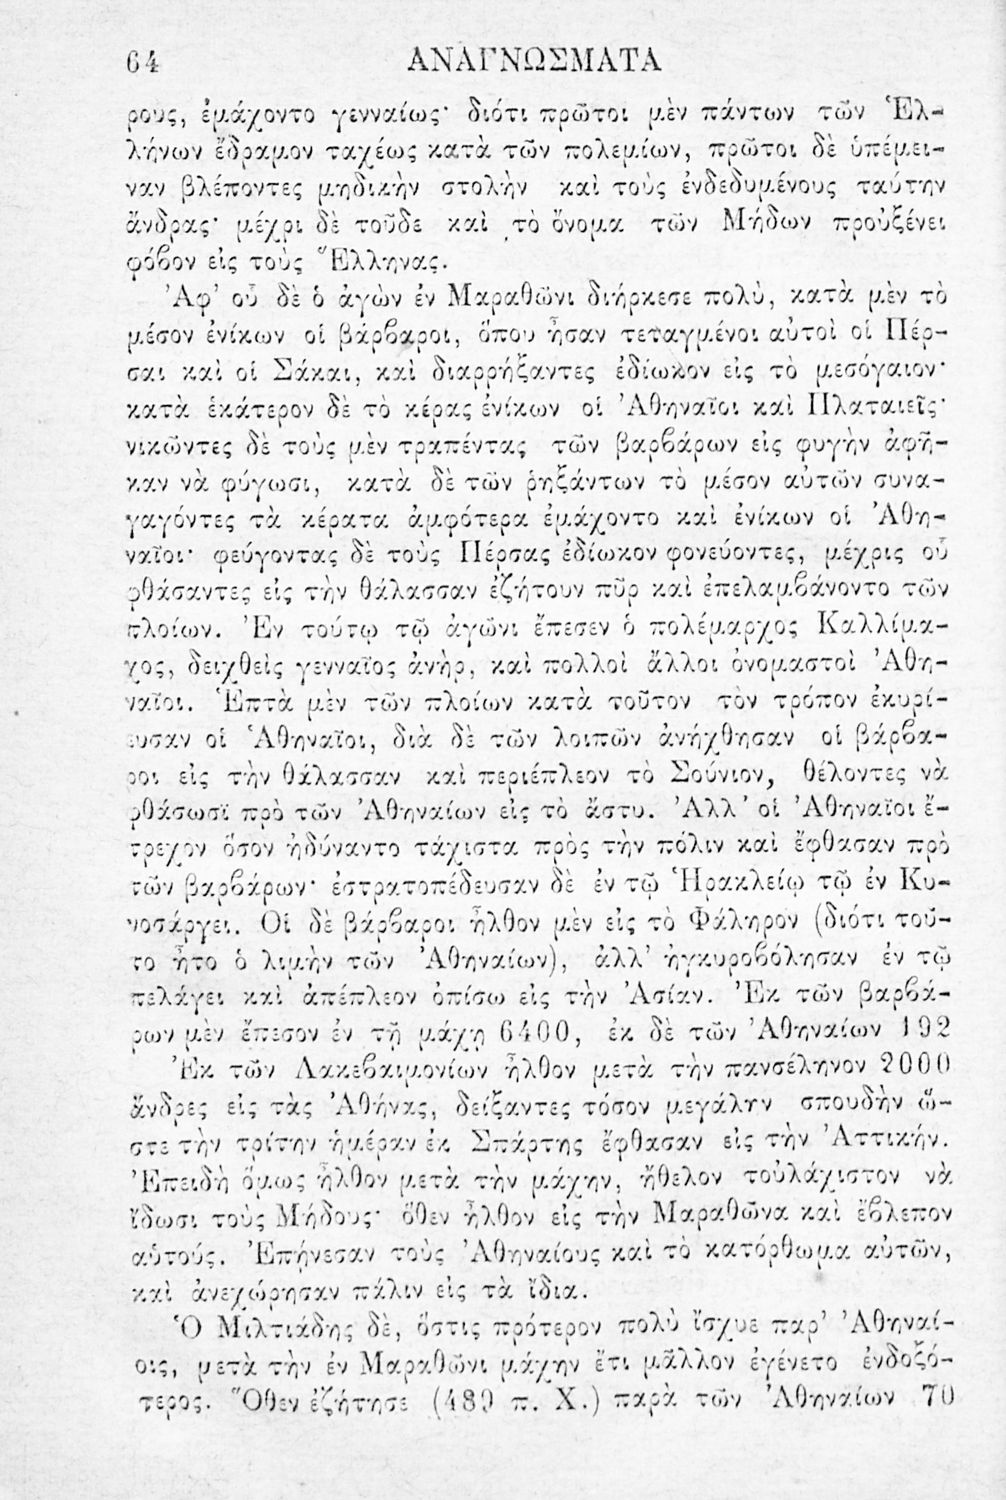 64 ΑΝΑΓΝΩΣΜΑΤΑ
ρους, ἐμάχοντο γενναίως· διότι πρῶτοι μὲν πάντων τῶν Ἑλ-
λήνων ἔδραμον ταχέως κατὰ τῶν πολεμίων, πρῶτοι δὲ ὑπέμει-
ναν βλέποντες μηδικὴν στολὴν καὶ τοὺς ἐνδεδυμένους ταύτην
ἄνδρας· μέχρι δὲ τοῦδε καὶ τὸ ὄνομα τῶν Μήδων προὐξένει
φόβον εἰς τοὺς Ἕλληνας.
Ἀφ' οὗ δὲ ὁ ἀγὼν ἐν Μαραθῶνι διήρκεσε πολύ, κατὰ μὲν τὸ
μέσον ἐνίκων οἱ βάρβαροι, ὅπου ἦσαν τεταγμένοι αὐτοὶ οἱ Πέρ-
σαι καὶ οἱ Σάκαι, καὶ διαρρήξαντες ἐδίωκον εἰς τὸ μεσόγαιον·
κατὰ ἑκάτερον δὲ τὸ κέρας ἐνίκων οἱ Ἀθηναῖοι καὶ Πλαταιεῖς·
νικῶντες δὲ τοὺς μὲν τραπέντας τῶν βαρβάρων εἰς φυγὴν ἀφῆ-
καν νὰ φύγωσι, κατὰ δὲ τῶν ῥηξάντων τὸ μέσον αὐτῶν συνα-
γαγόντες τὰ κέρατα ἀμφότερα ἐμάχοντο καὶ ἐνίκων οἱ Ἀθη-
ναῖοι· φεύγοντας δὲ τοὺς Πέρσας ἐδίωκον φονεύοντες, μέχρις οὗ
φθάσαντες εἰς τὴν θάλασσαν ἐζήτουν πῦρ καὶ ἐπελαμβάνοντο τῶν
πλοίων. Ἐν τούτῳ τῷ ἀγῶνι ἔπεσεν ὁ πολέμαρχος Καλλίμα-
χος, δειχθεὶς γενναῖος ἀνὴρ, καὶ πολλοὶ ἄλλοι ὀνομαστοὶ Ἀθη-
ναῖοι. Ἑπτὰ μὲν τῶν πλοίων κατὰ τοῦτον τὸν τρόπον ἐκυρί-
ευσαν οἱ Ἀθηναῖοι, διὰ δὲ τῶν λοιπῶν ἀνήχθησαν οἱ βάρβα-
ροι εἰς τὴν θάλασσαν καὶ περιέπλεον τὸ Σούνιον, θέλοντες νὰ
φθάσωσι πρὸ τῶν Ἀθηναίων εἰς τὸ ἄστυ. Ἀλλ' οἱ Ἀθηναῖοι ἔ-
τρεχον ὅσον ἠδύναντο τάχιστα πρὸς τὴν πόλιν καὶ ἔφθασαν πρὸ
τῶν βαρβάρων· ἐστρατοπέδευσαν δὲ ἐν τῷ Ἡρακλείῳ τῷ ἐν Κυ-
νοσάργει. Οἱ δὲ βάρβαροι ἦλθον μὲν εἰς τὸ Φάληρον (διότι τοῦ-
το ἦτο ὁ λιμὴν τῶν Ἀθηναίων), ἀλλ' ἠγκυροβόλησαν ἐν τῷ
πελάγει καὶ ἀπέπλεον ὀπίσω εἰς τὴν Ἀσίαν. Ἐκ τῶν βαρβά-
ρων μὲν ἔπεσον ἐν τῇ μάχῃ 6400, ἐκ δὲ τῶν Ἀθηναίων 192
Ἐκ τῶν Λακεβαιμονίων ἦλθον μετὰ τὴν πανσέληνον 2000
ἄνδρες εἰς τὰς Ἀθήνας, δείξαντες τόσον μεγάλην σπουδὴν ὥ-
στε τὴν τρίτην ἡμέραν ἐκ Σπάρτης ἔφθασαν εἰς τὴν Ἀττικήν.
Ἐπειδὴ ὅμως ἦλθον μετὰ τὴν μάχην, ἤθελον τοὐλάχιστον νὰ
ἴδωσι τοὺς Μήδους· ὅθεν ἦλθον εἰς τὴν Μαραθῶνα καὶ ἔβλεπον
αὐτούς. Ἐπῄνεσαν τοὺς Ἀθηναίους καὶ τὸ κατόρθωμα αὐτῶν,
καὶ ἀνεχώρησαν πάλιν εἰς τὰ ἴδια.
Ὁ Μιλτιάδης δὲ, ὅστις πρότερον πολὺ ἴσχυε παρ' Ἀθηναί-
οις, μετὰ τὴν ἐν Μαραθῶνι μάχην ἔτι μᾶλλον ἐγένετο ἐνδοξό-
τερος. Ὅθεν ἐζήτησε (489 π. Χ.) παρὰ τῶν Ἀθηναίων 70